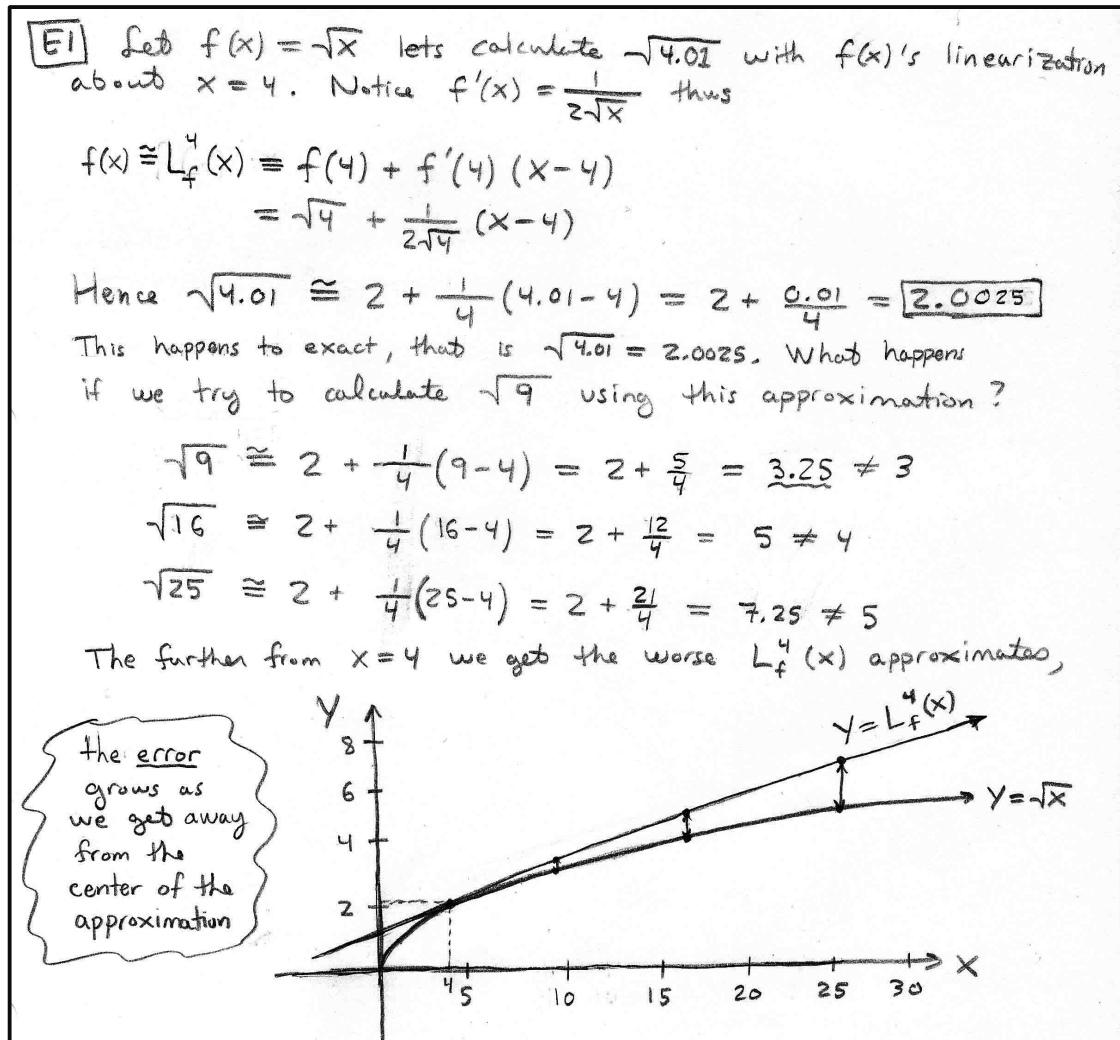 E1 Let f(x) = √x lets calculate √4.01 with f(x)'s linearization
about x = 4. Notice f'(x) = 1/(2√x) thus
f(x) ≅ L_f^4(x) ≡ f(4) + f'(4) (x-4)
= √4 + 1/(2√4) (x-4)
Hence √4.01 ≅ 2 + 1/4 (4.01-4) = 2 + 0.01/4 = 2.0025
This happens to exact, that is √4.01 = 2.0025. What happens
if we try to calculate √9 using this approximation?
√9 ≅ 2 + 1/4 (9-4) = 2 + 5/4 = 3.25 ≠ 3
√16 ≅ 2 + 1/4 (16-4) = 2 + 12/4 = 5 ≠ 4
√25 ≅ 2 + 1/4 (25-4) = 2 + 21/4 = 7.25 ≠ 5
The further from x = 4 we get the worse L_f^4 (x) approximates,
the error
grows as
we get away
from the
center of the
approximation
Y
8
6
4
2
y = L_f^4(x)
y = √x
4 5 10 15 20 25 30 X